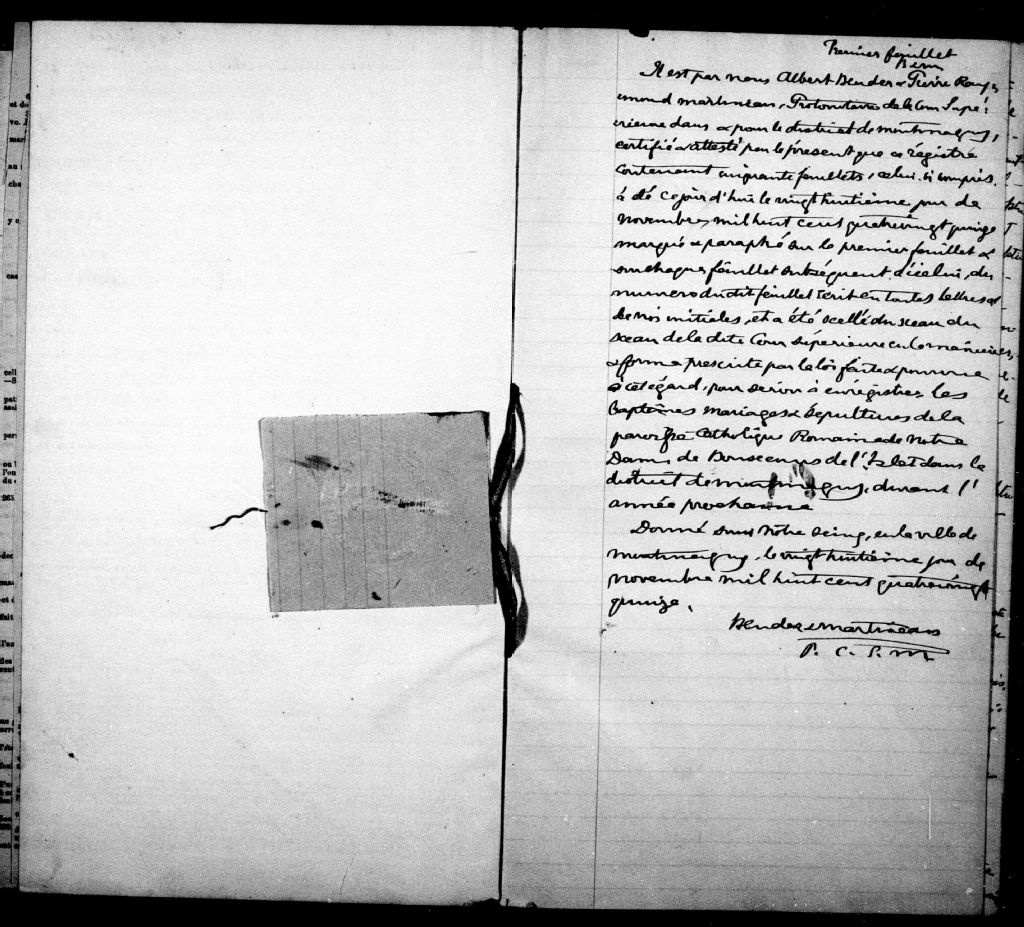 Premier feuillet
B & M
Il est par nous Albert Bender & Pierre Raym
emond Martineau, Protonotaire de la Cour Supé
rieure dans & pour le district de Montmagny,
certifié & attesté par le présent que ce régistre
contenant cinquante feuillets, celui-ci compris,
a été ce jour d'hui le vingt huitième jour de
novembre, mil huit cent quatrevingt quinze
marqué & paraphé sur le premier feuillet &
sur chaque feuillet subséquent d'icelui, du
numero du dit feuillet écrit en toutes lettres &
de nos initiales, et a été scellé du sceau du
sceau de la dite Cour Supérieure en la manière
& forme prescrite par la loi faite & pourvue
à cet égard, pour servir à enrégistrer les
Baptêmes Mariages & Sépultures de la
paroisse Catholique Romaine de Notre
Dame de Bonsecours de l'Islet dans le
district de Montmagny, durant l'
année prochaine
Donné sous notre seing, en la ville de
Montmagny, le vingt huitième jour de
novembre mil huit cent quatrevingt
quinze.
Bender & Martineau
P. C. S. M